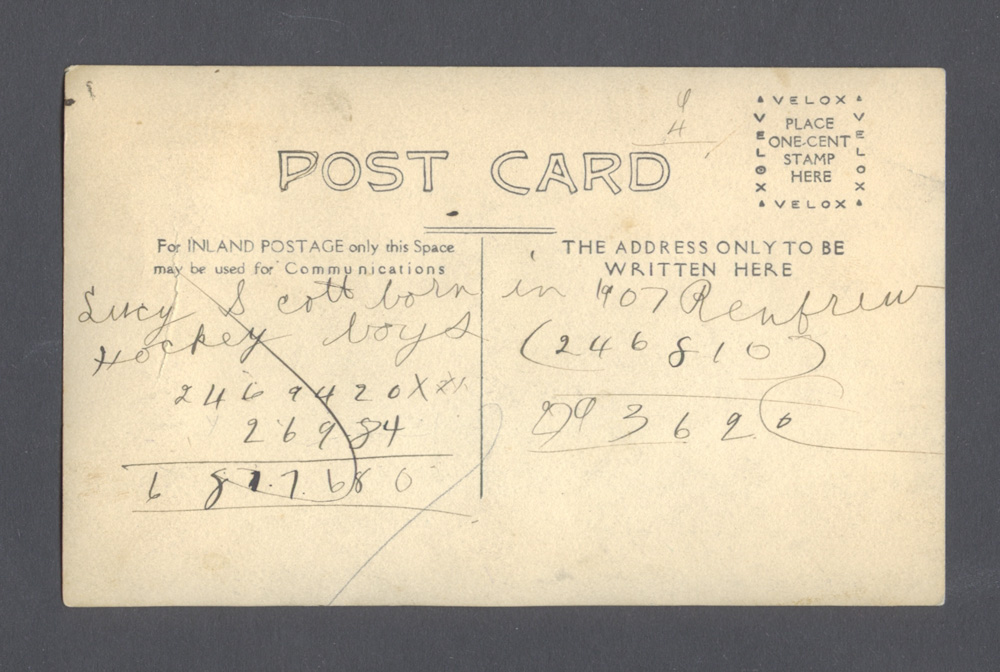 9
4
VELOX
VELOX
VELOX
PLACE
ONE-CENT
STAMP
HERE
VELOX
POST CARD
For INLAND POSTAGE only this Space
may be used for Communications
THE ADDRESS ONLY TO BE
WRITTEN HERE
Lucy Scott born in 1907 Renfrew
Hockey boys
(246810)
2469420X
26984
6877680
3620